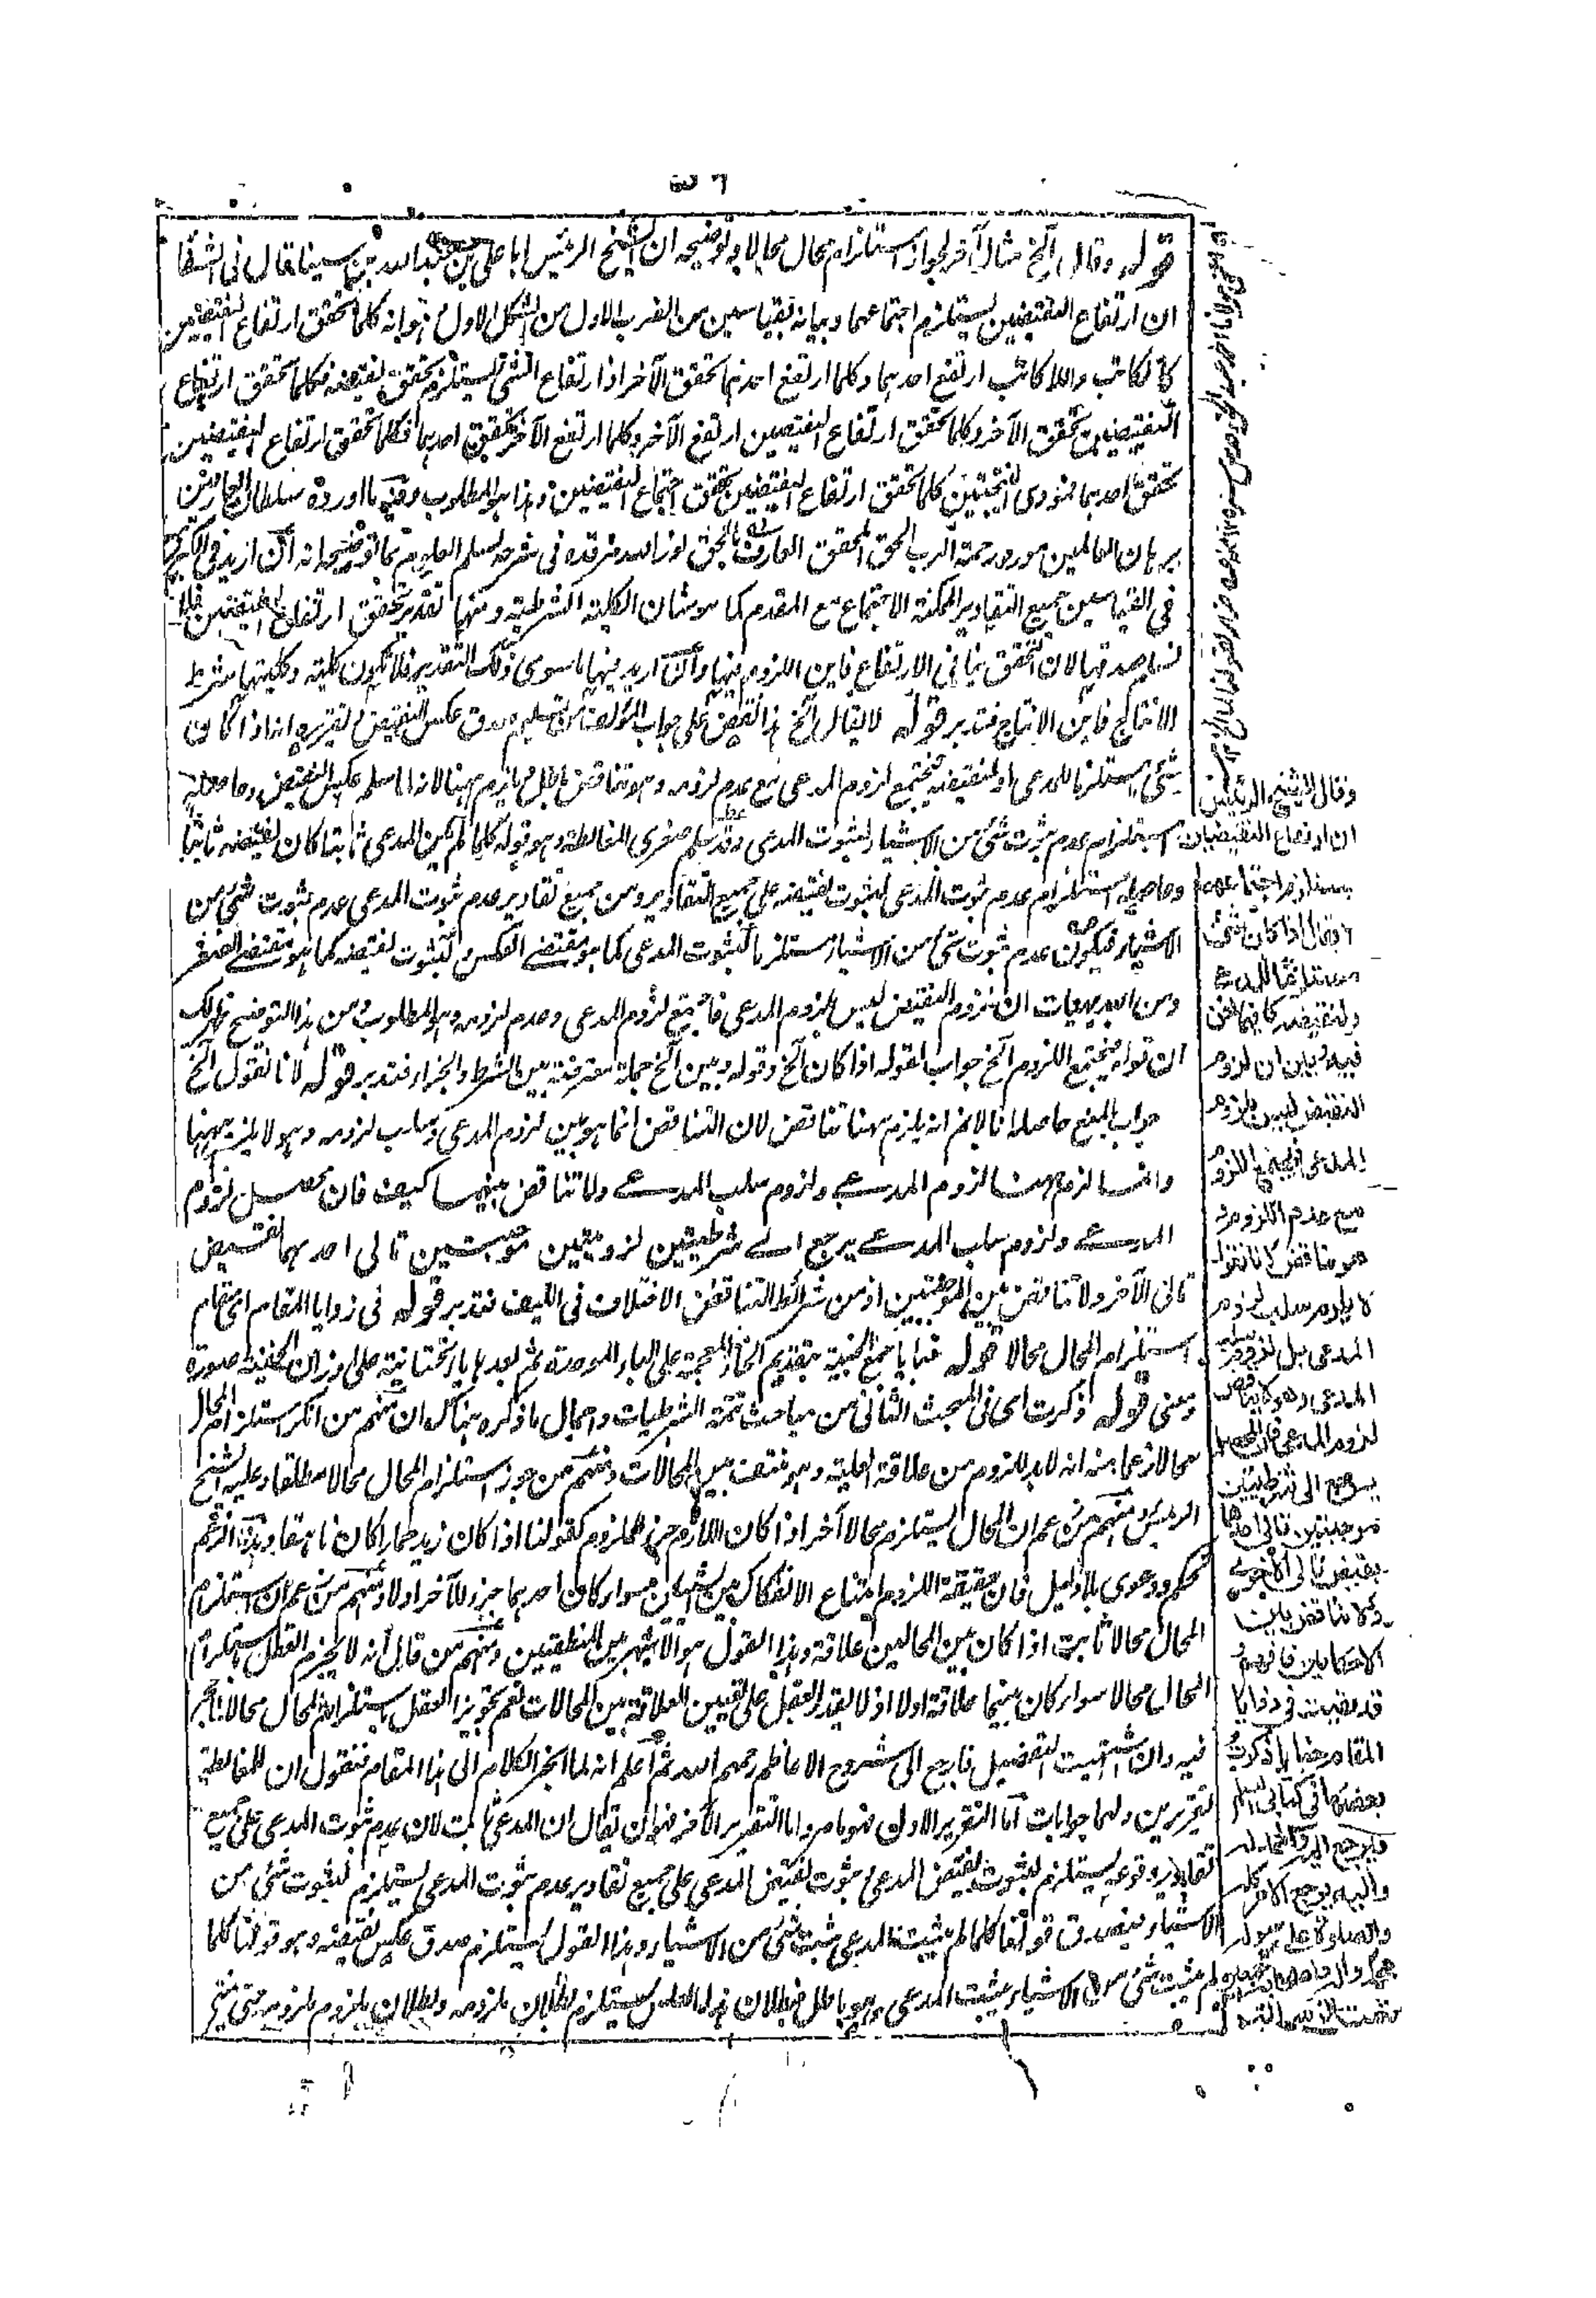 ٣٦
قوله وقال الخ مثال آخر لجواز استلزام محال محالا وتوضيحه ان الشيخ الرئيس ابا على بن عبد الله بن سينا قال فى الشفا
ان ارتفاع النقيضين يستلزم اجتماعهما وبيانه بقياسين من الضرب الاول من الشكل الاول هو انه كلما تحقق ارتفاع النقيضين
كالكاتب واللاكاتب ارتفع احدهما وكلما ارتفع احدهما تحقق الآخر اذ ارتفاع الشئ يستلزم تحقق نقيضه فكلما تحقق ارتفاع
النقيضين تحقق الآخر وكلما تحقق ارتفاع النقيضين ارتفع الآخر وكلما ارتفع الآخر تحقق احدهما فكلما تحقق ارتفاع النقيضين
تحقق احدهما فمؤدى النتيجتين كلما تحقق ارتفاع النقيضين تحقق اجتماع النقيضين وهذا هو المطلوب وفيه ما اورده سلطان العارفين
برهان العالمين مورد رحمة الرب الحق المحقق العارف بالحق نور الله مرقده فى شرحه لسلم العلوم بما توضيحه انه ان اريد فى الكبرى
فى القياسين جميع التقادير الممكنة الاجتماع مع المقدم كما هو شان الكلية الشرطية ومنها تقدير تحقق ارتفاع النقيضين فلا
نسلم صدقها لان التحقق ينافى الارتفاع فاين اللزوم فيها وان اريد منها ما سوى ذلك التقدير فلا تكون كلية وكليتها شرط
الانتاج فاين الانتاج فتدبر قوله لا يقال الخ هذا نقض على جواب المؤلف من تسليم صدق عكس النقيض تقريره انه اذا كان
شئ مستلزما للمدعى او لنقيضه فيجتمع لزوم المدعى مع عدم لزومه وهو تناقض باطل يلزم ههنا لانه لما سلم عكس النقيض وحاصله
استلزام عدم ثبوت شئ من الاشياء لثبوت المدعى وقد سلم صغرى المغالطة وهو قوله كلما لم يكن المدعى ثابتا كان نقيضه ثابتا
وحاصله استلزام عدم ثبوت المدعى لثبوت نقيضه على جميع التقادير ومن جميع تقادير عدم ثبوت المدعى عدم ثبوت شئ من
الاشياء فيكون عدم ثبوت شئ من الاشياء مستلزما لثبوت المدعى كما هو مقتضى العكس ولثبوت نقيضه كما هو مقتضى الصغرى
ومن البديهيات ان لزوم النقيض ليس بلزوم المدعى فاجتمع لزوم المدعى وعدم لزومه وهو المطلوب ومن هذا التوضيح ظهر لك
ان قوله فيجتمع اللزوم الخ جواب لقوله اذا كان الخ وقوله وبين الخ جملة معترضة بين الشرط والجزاء فتدبر قوله لانا نقول الخ
جواب بالمنع حاصله انا لا نم انه يلزم ههنا تناقض لان التناقض انما هو بين لزوم المدعى وسلب لزومه وهو لا يلزم ههنا
وانما لزم ههنا لزوم المدعى ولزوم سلب المدعى ولا تناقض بينهما كيف فان محصل لزوم
المدعى ولزوم سلب المدعى يرجع الى شرطيتين لزوميتين موجبتين تالى احدهما نقيض
تالى الآخر ولا تناقض بين الموجبتين اذ من شرائط التناقض الاختلاف فى الكيف فتدبر قوله فى زوايا المقام اى مقام
استلزام المحال محالا قوله خبايا جمع الخبية بتقديم الخاء المعجمة على الباء الموحدة ثم بعدها ياء تحتانية على اوزان الخفية صورة
ومعنى قوله ذكرت اى فى المبحث الثانى من مباحث تتمة الشرطيات واجمال ما ذكره هناك ان منهم من انكر استلزام المحال
محالا زعما منه انه لابد للزوم من علاقة العلية وهو منتف بين المحالات ومنهم من جوز استلزام المحال محالا مطلقا وعليه الشيخ
الرئيس ومنهم من زعم ان المحال يستلزم محالا آخر اذا كان اللازم جزء الملزوم كقولنا اذا كان زيد حمارا كان ناهقا وهذا الزعم
تحكم ودعوى بلا دليل فان حقيقة اللزوم امتناع الانفكاك بين الشيئين سواء كان احدهما جزء للآخر اولا ومنهم من زعم ان استلزام
المحال محالا ثابت اذا كان بين المحالين علاقة وهذا القول هو الاشهر بين المنطقيين ومنهم من قال انه لا يجزم العقل باستلزام
المحال محالا سواء كان بينهما علاقة اولا اذ لا يقدر العقل على تعيين العلاقة بين المحالات نعم تجويز العقل باستلزام المحال محالا
فيه وان اشتهيت التفصيل فارجع الى شروح الاعاظم رحمهم الله ثم اعلم انه لما انجر الكلام الى هذا المقام فنقول ان للمغالطة
تقريرين ولهما جوابات اما التقرير الاول فهو ما مر واما التقرير الآخر فهو ان يقال ان المدعى ثابت لان عدم ثبوت المدعى على جميع
تقادير وقوعه يستلزم لثبوت نقيض المدعى فثبوت نقيض المدعى على جميع تقادير عدم ثبوت المدعى يستلزم لثبوت شئ من
الاشياء فيصدق قولنا كلما لم يثبت المدعى ثبت شئ من الاشياء وهذا القول يستلزم صدق عكس نقيضه وهو قولنا كلما
لم يثبت شئ من الاشياء يثبت المدعى وهو باطل فبطلان هذا العكس يستلزم بطلان ملزومه وبطلان ملزوم ملزومه حتى
وقال الشيخ الرئيس
ان ارتفاع النقيضين
يستلزم اجتماعهما
لا يقال اذا كان شئ
مستلزما للمدعى
ولنقيضه كما فيما نحن
فيه وبين ان لزوم
النقيض ليس بلزوم
المدعى فيجتمع اللزوم
مع عدم اللزوم
هو تناقض لانا نقول
لا يلزم سلب لزوم
المدعى بل لزوم سلب
المدعى وهو لا يناقض
لزوم المدعى فان محصله
يرجع الى شرطيتين
موجبتين تالى احدهما
نقيض تالى الاخرى
ولا تناقض بين
الايجابين فافهم
قد بقيت فى زوايا
المقام خبايا ذكرت
بعضها فى كتابى السلم
فليرجع اليه والحمد لله
واليه يرجع الامر كله
والصلوة على رسوله
محمد وآله واصحابه